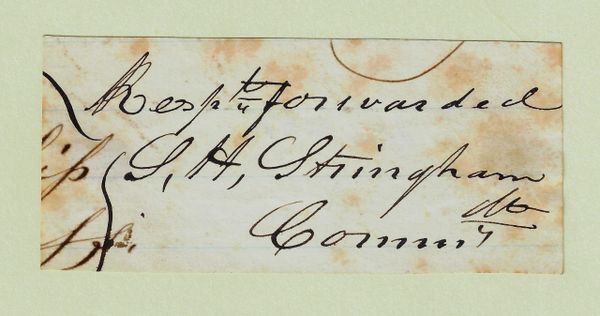 Respty forwarded
S, H, Stringham
Commdt